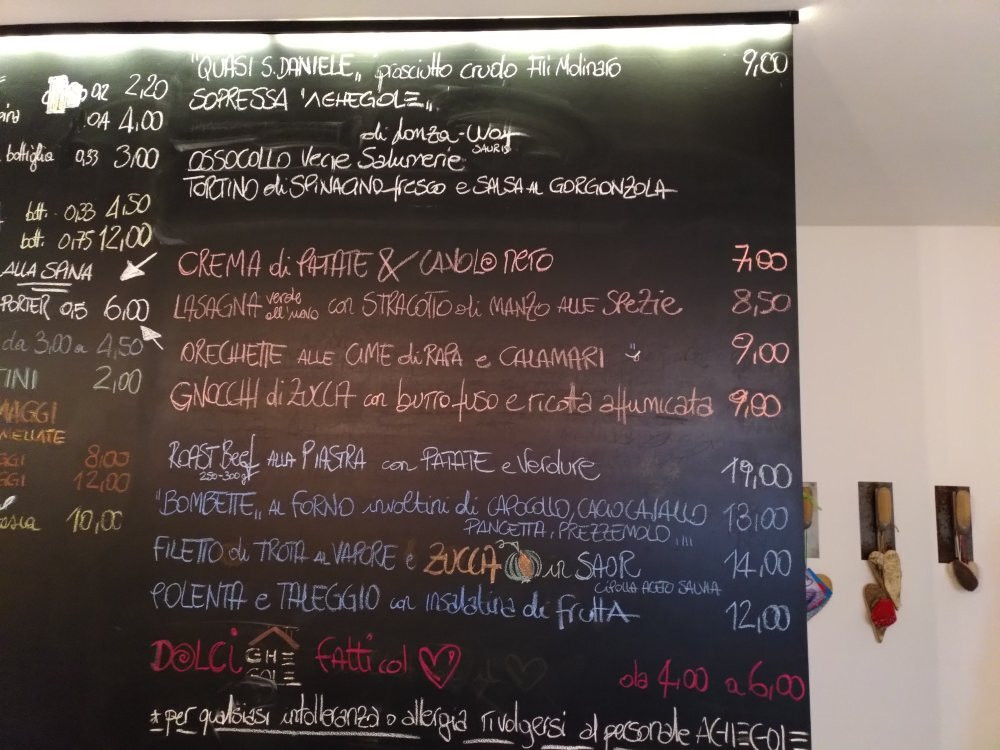 0,2 2,20
0,4 4,00
bottiglia 0,33 3,00
bott. 0,33 4,50
bott. 0,75 12,00
ALLA SPINA
PORTER 0,5 6,00
da 3,00 a 4,50
TINI 2,00
MAGGI
MELLATE
GGI 8,00
GGI 12,00
10,00
"QUASI S.DANIELE„ prosciutto crudo F.lli Molinaro 9,00
SOPRESSA "ACHEGOLE„
di Lonza-Way
SAURIS
OSSOCOLLO Vecie Salumerie
TORTINO di SPINACINO fresco e SALSA AL GORGONZOLA
CREMA di PATATE & CAVOLO NERO 7,00
LASAGNA verde all'uovo con STRACOTTO di MANZO ALLE SPEZIE 8,50
ORECCHIETTE ALLE CIME di RAPA e CALAMARI 9,00
GNOCCHI di ZUCCA con burro fuso e ricotta affumicata 9,00
ROAST Beef ALLA PIASTRA con PATATE e Verdure 19,00
250-300 gr
"BOMBETTE„ AL FORNO involtini di CAPOCOLLO, CACIOCAVALLO 13,00
PANCETTA, PREZZEMOLO....
FILETTO di TROTA AL VAPORE e ZUCCA in SAOR 14,00
CIPOLLA ACETO SALVIA
POLENTA e TALEGGIO con insalatina di frutta 12,00
DOLCI CHE GOLE fatti col da 4,00 a 6,00
*per qualsiasi intolleranza o allergia rivolgersi al personale ACHEGOLE